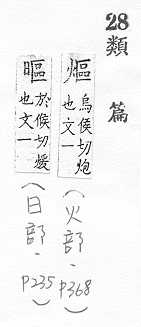 28類
篇
熰烏侯切炮
也文一
(火部·P368)
㬂於侯切煖
也文一
(日部·P235)